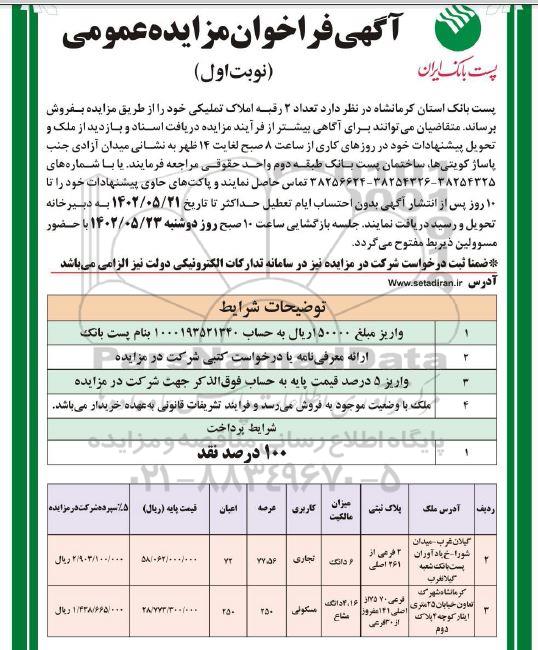 آگهی فراخوان مزایده عمومی
(نوبت اول)
پست بانک ایران
پست بانک استان کرمانشاه در نظر دارد تعداد ۲ رقبه املاک تملیکی خود را از طریق مزایده بفروش
برساند. متقاضیان می‌توانند برای آگاهی بیشتر از فرآیند مزایده دریافت اسناد و بازدید از ملک و
تحویل پیشنهادات خود در روزهای کاری از ساعت ۸ صبح لغایت ۱۴ ظهر به نشانی میدان آزادی جنب
پاساژ کویتی‌ها، ساختمان پست بانک طبقه دوم واحد حقوقی مراجعه فرمایند. یا با شماره‌های
۳۸۲۵۴۳۲۵-۳۸۲۵۴۳۲۶-۳۸۲۵۶۶۲۴ تماس حاصل نمایند و پاکت‌های حاوی پیشنهادات خود را تا
۱۰ روز پس از انتشار آگهی بدون احتساب ایام تعطیل حداکثر تا تاریخ ۱۴۰۲/۰۵/۲۱ به دبیرخانه
تحویل و رسید دریافت نمایند. جلسه بازگشایی ساعت ۱۰ صبح روز دوشنبه ۱۴۰۲/۰۵/۲۳ با حضور
مسوولین ذیربط مفتوح می‌گردد.
*ضمنا ثبت درخواست شرکت در مزایده نیز در سامانه تدارکات الکترونیکی دولت نیز الزامی می‌باشد
آدرس www.setadiran.ir
توضیحات شرایط
۱ واریز مبلغ ۱۵۰۰۰۰ ریال به حساب ۱۰۰۰۱۹۳۵۲۱۳۴۰ بنام پست بانک
۲ ارائه معرفی‌نامه یا درخواست کتبی شرکت در مزایده
۳ واریز ۵ درصد قیمت پایه به حساب فوق‌الذکر جهت شرکت در مزایده
۴ ملک با وضعیت موجود به فروش می‌رسد و فرایند تشریفات قانونی به‌عهده خریدار می‌باشد.
شرایط پرداخت
۱ ۱۰۰ درصد نقد
پایگاه اطلاع رسانی مناقصه و مزایده
۰۲۱-۸۸۳۴۹۶۷۰-۵
ردیف آدرس ملک پلاک ثبتی میزان مالکیت کاربری عرصه اعیان قیمت پایه (ریال) ۵٪ سپرده شرکت در مزایده
۲ گیلان‌غرب-میدان شورا-خ یادآوران پست بانک شعبه گیلانغرب ۲ فرعی از ۲۶۱ اصلی ۶ دانگ تجاری ۷۷،۵۶ ۷۲ ۵۸/۰۶۲/۰۰۰/۰۰۰ ۲/۹۰۳/۱۰۰/۰۰۰ ریال
۳ کرمانشاه شهرک تعاون خیابان ۲۵ متری ایثار کوچه ۴ پلاک دوم فرعی ۷۰ ۷۵از اصلی ۱۴۱ مفروز از ۳۰ فرعی ۴،۱۶ دانگ مشاع مسکونی ۲۵۰ ۲۵۰ ۲۸/۷۷۳/۳۰۰/۰۰۰ ۱/۴۳۸/۶۶۵/۰۰۰ ریال